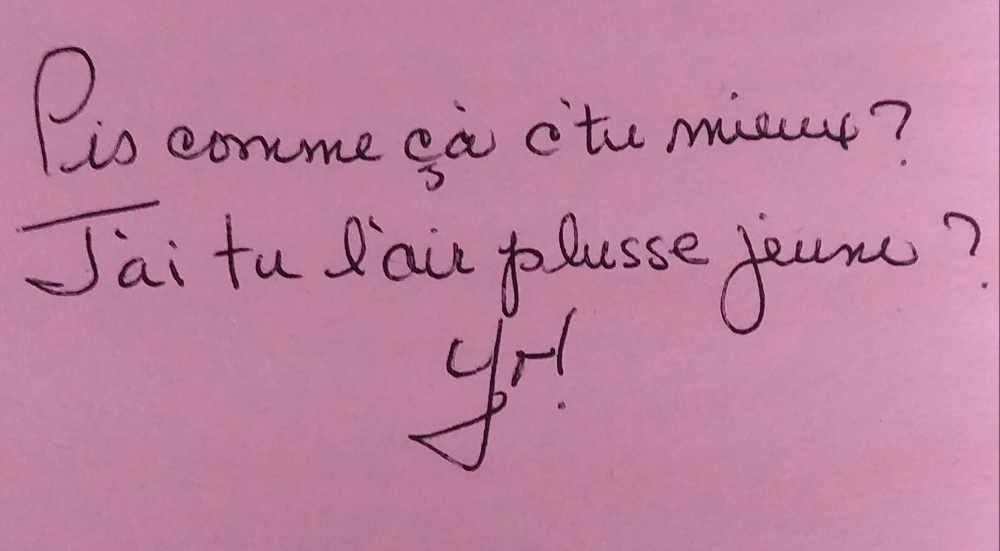 Pis comme çà c'tu mieux?
J'ai tu l'air plusse jeune?